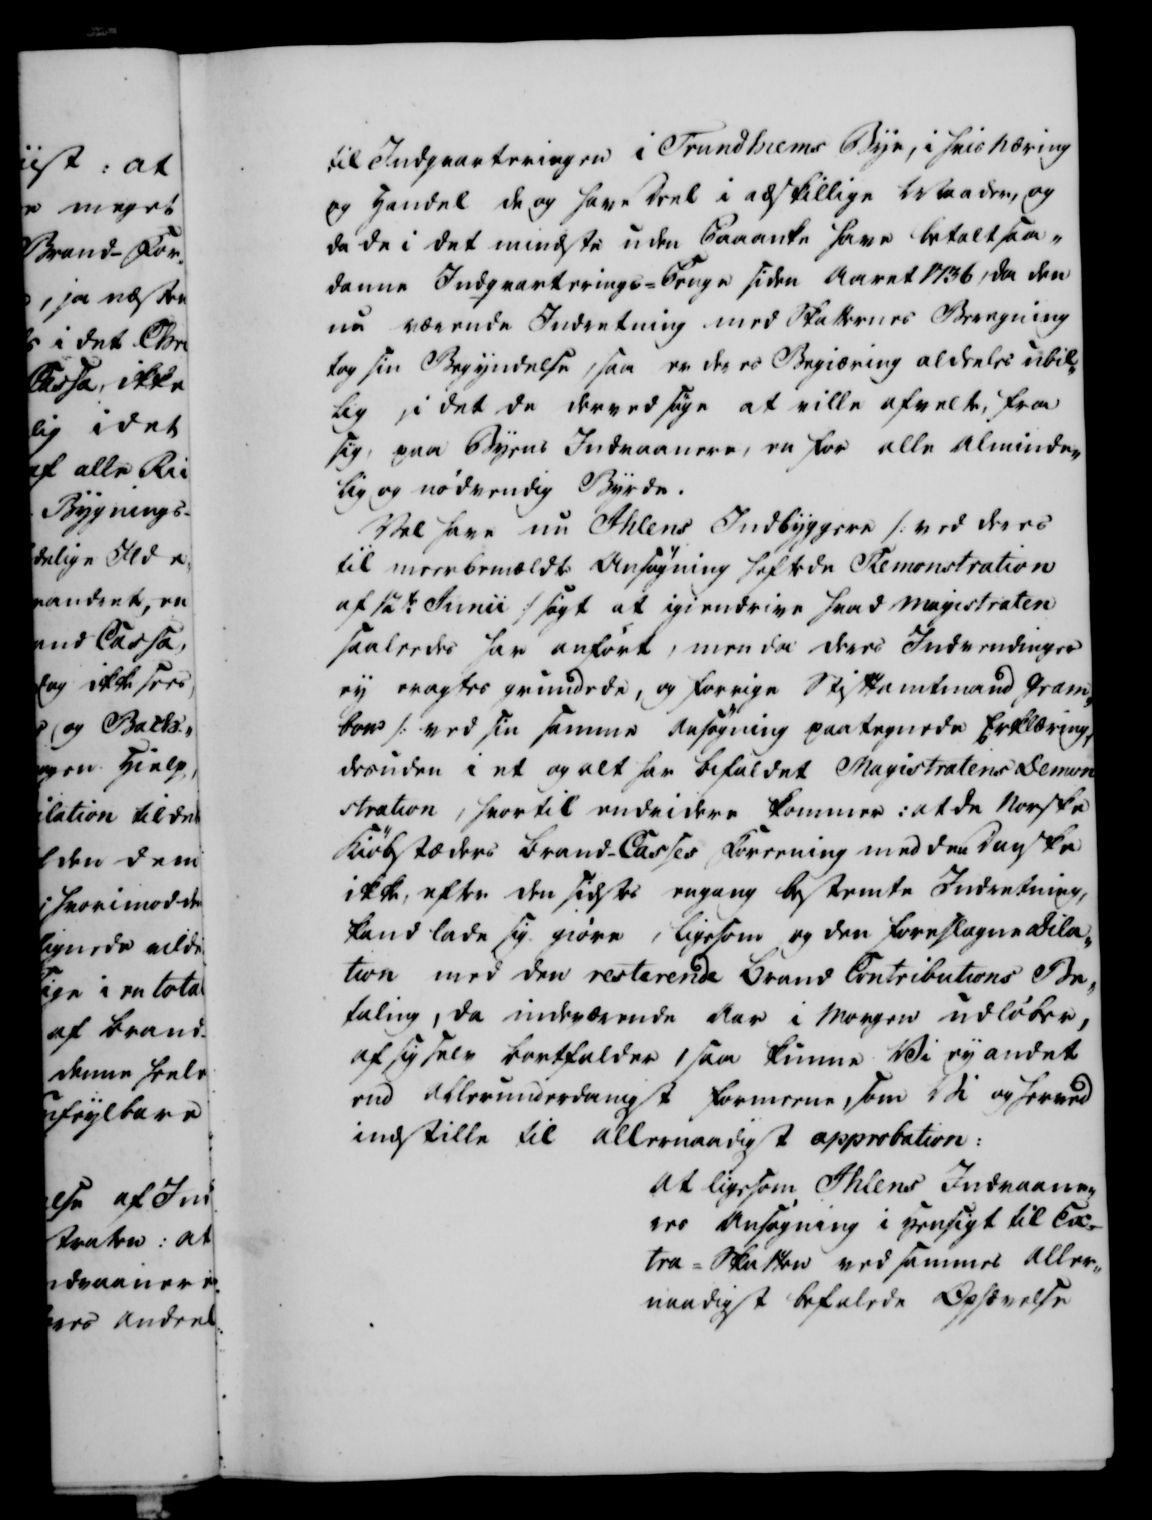 til Indqvarteringen i Trundhiems Bÿe, i hvis Næring
og Handel de og have Deel i adskillige Maader, og
da de i det mindste uden Paaanke have betalt saa„
danne Indqvarterings=Penge siden Aaret 1736, da den
nu værende Indretning med Skatternes Beregning
tog sin Begÿndelse, saa er deres Begiæring aldeeles ubil„
lig, i det de derved søge at ville afvelte, fra
sig, paa Bÿens Indvaanere, en for alle Alminde„
lig og nødvendig Bÿrde.
Vel have nu Ihlens Indbÿggere /: ved deres
til meerbemældte Ansøgning heftede Remonstration
af 12te Junii :/ søgt at igiendrive hvad Magistraten
saaledes har anført, men da deres Indvendinger
eÿ eragtes grundede, og forrige Stiftamtmand Gram„
bow /: ved sin samme Ansøgning paategnede Erklæring,
desuden i et og alt har bifaldet Magistratens Demon
stration, hvortil endvidere kommer: at de Norske
Kiøbstæders Brand-Casses Foreening med den Danske
ikke, efter den sidstes engang bestemte Indretning,
kand lade sig giøre, ligesom og den foreslagne Dila„
tion med den resterende Brand Contributions Be„
taling, da indeværende Aar i Morgen udløber,
af sig selv bortfalder, saa kunne Vi eÿ andet
end allerunderdanigst formeene, som Vi og herved
indstille til allernaadigst approbation:
At ligesom Ihlens Indvaane„
res Ansøgning i Hensigt til Ex„
tra=Skatten ved sammes Aller„
naadigst befalede Ophævelse